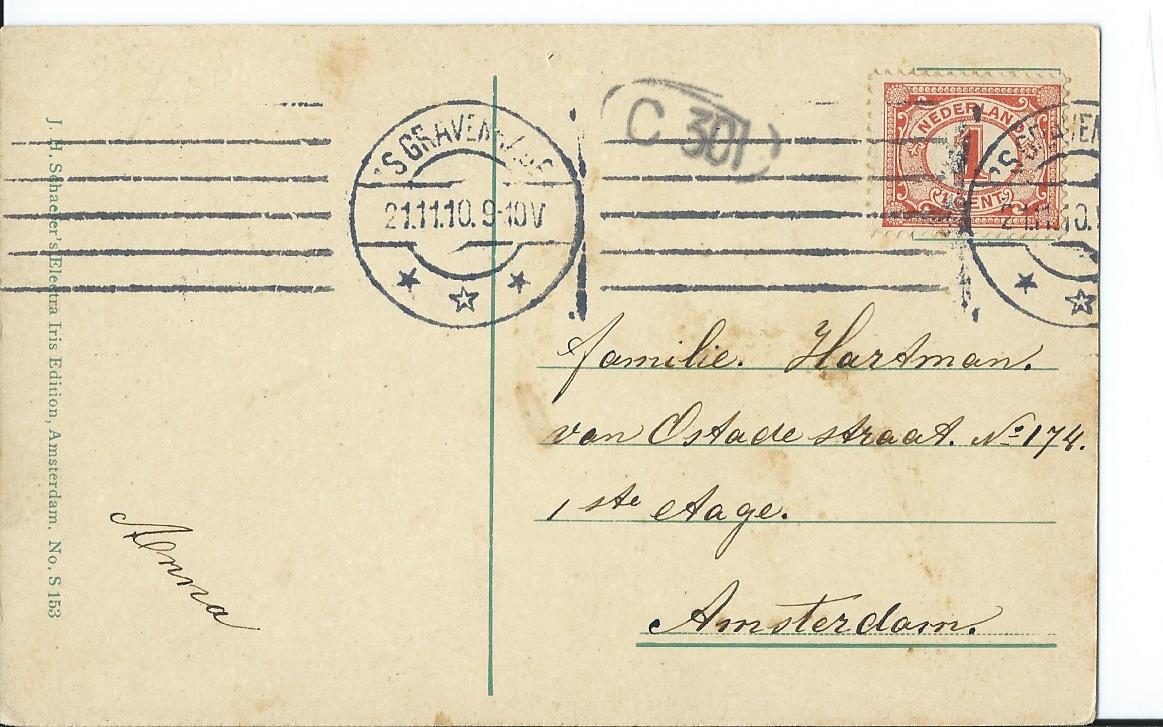 J. H. Schaefer's Electra Iris Edition, Amsterdam. No. S 153
'S GRAVENHAGE
21.11.10. 9-10V
C 30
NEDERLAN
1
CENT
'S GRAVEN
21.11.10.
familie. Hartman.
van Ostade straat. No 174.
1 ste etage.
Amsterdam.
Anna